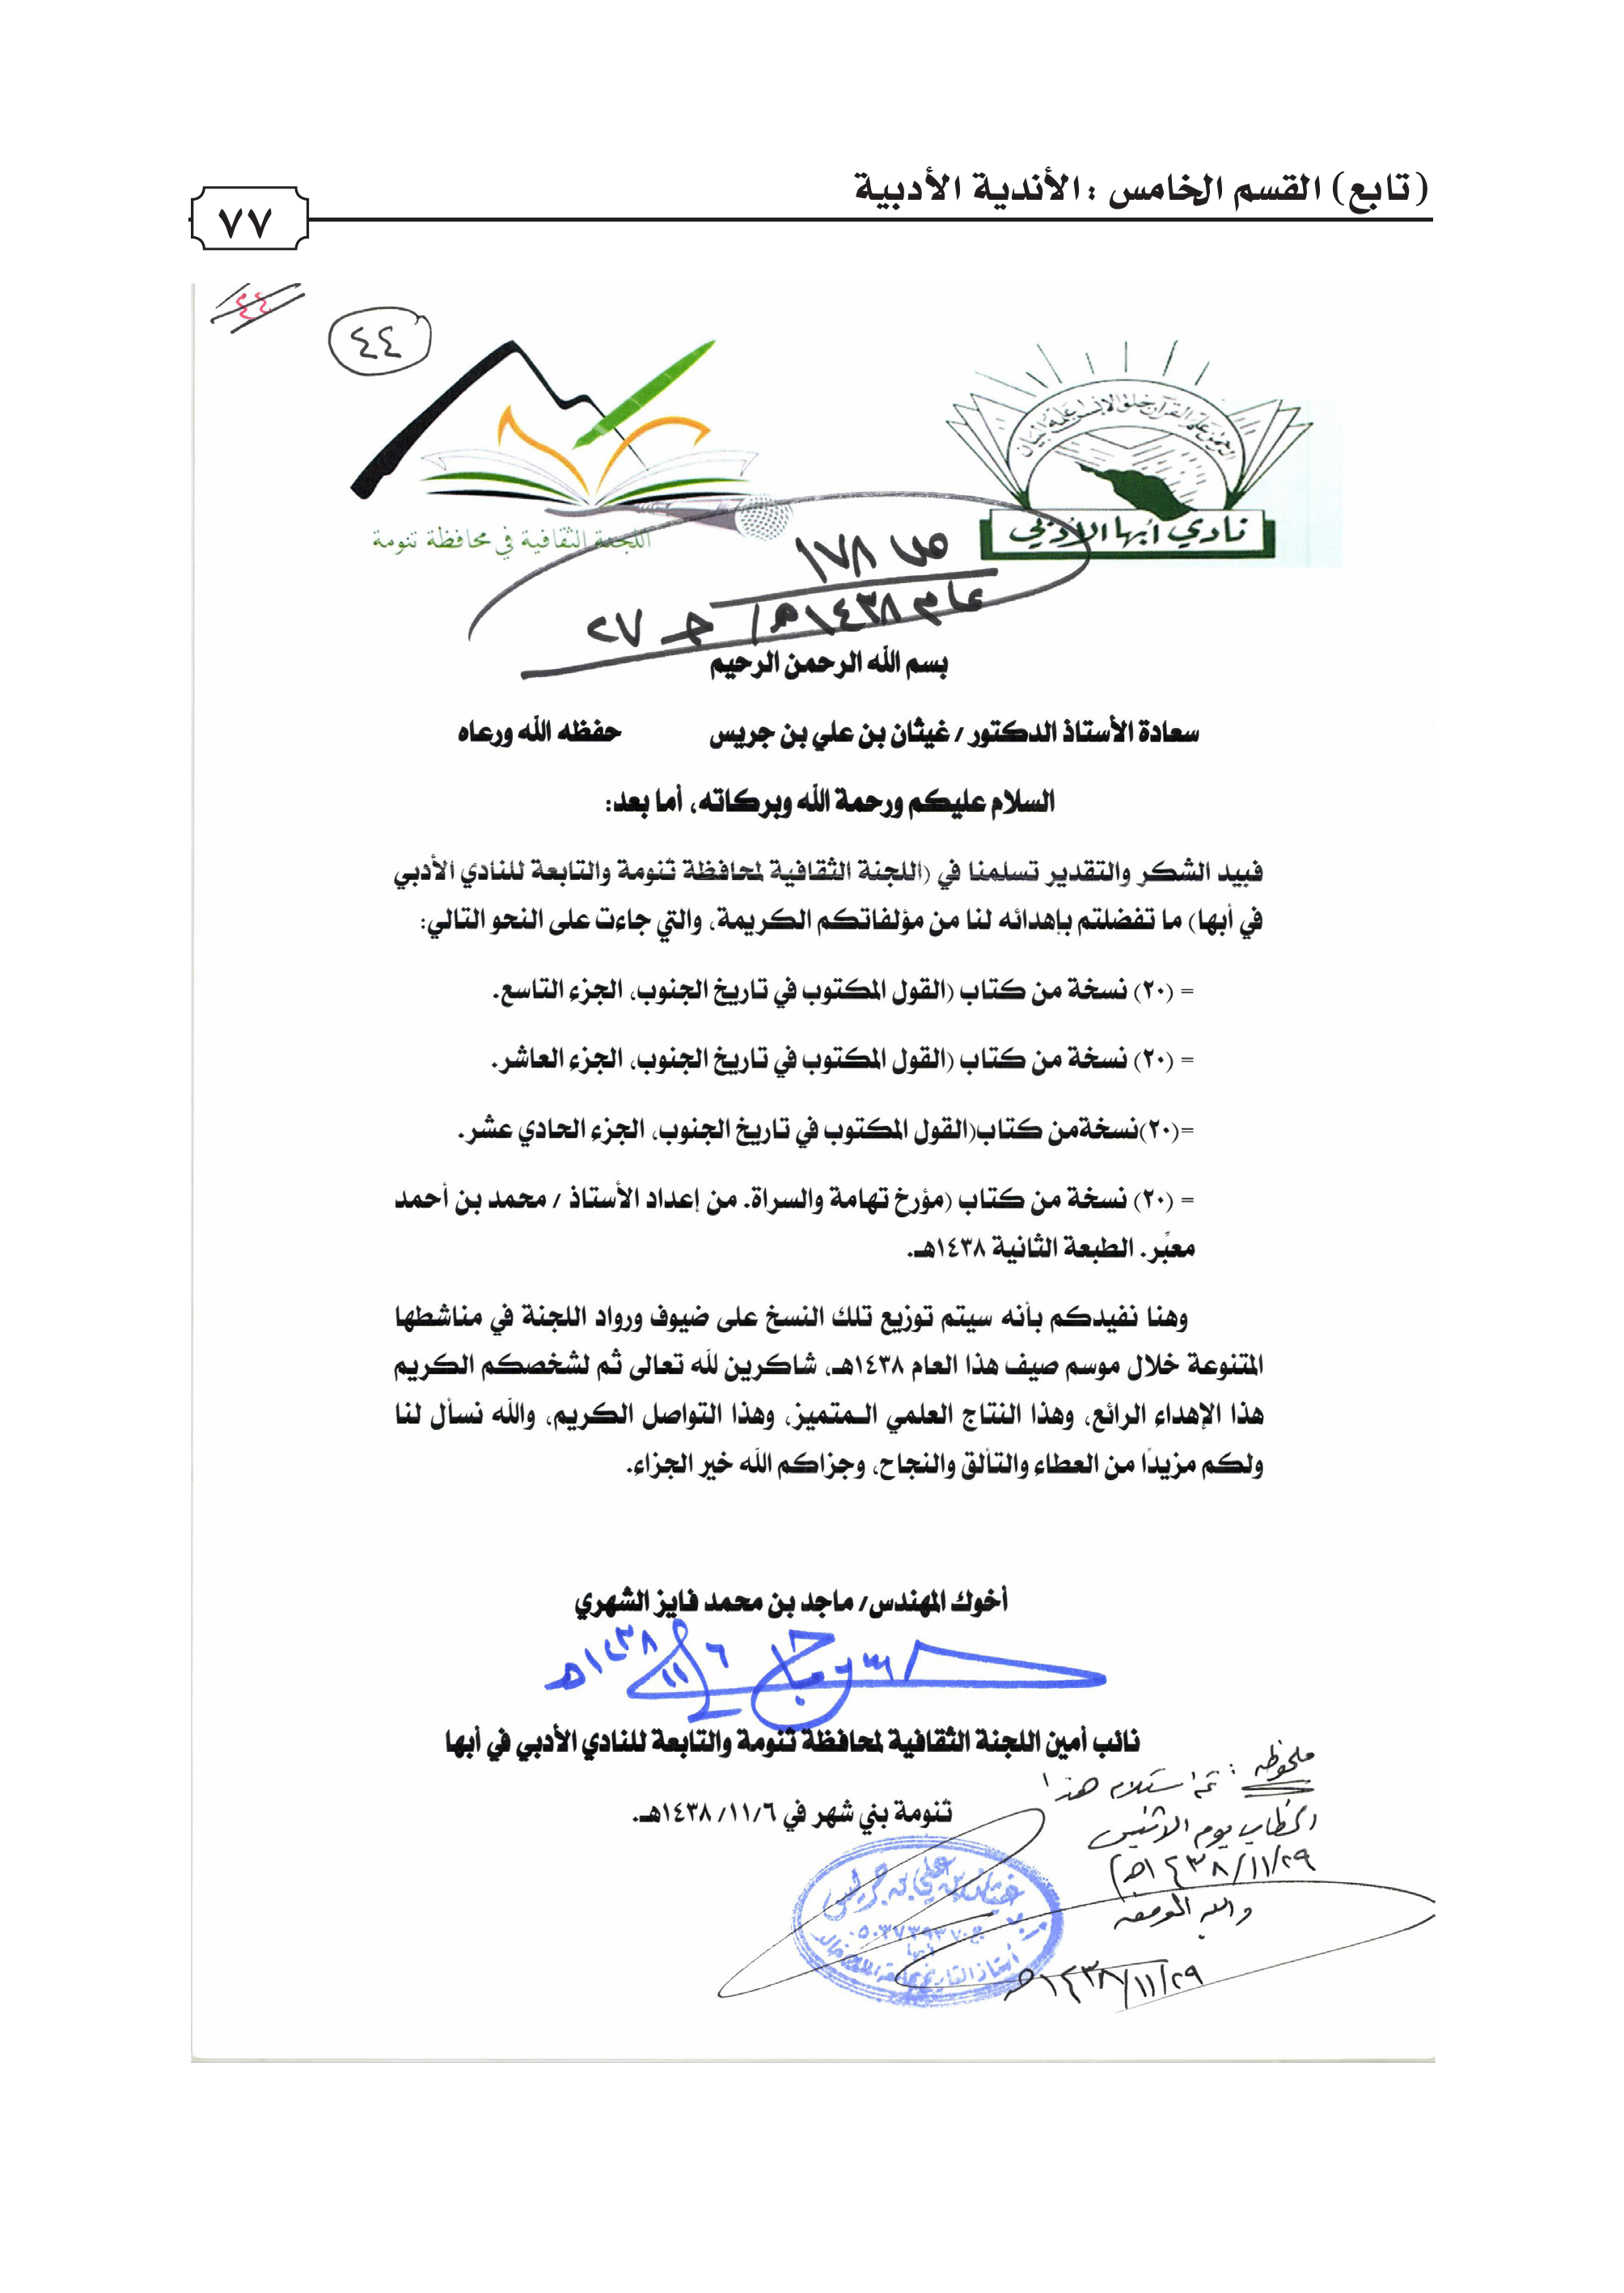 (تابع) القسم الخامس : الأندية الأدبية
٧٧
٤٤
٤٤
الرحمن علم القرآن خلق الإنسان علمه البيان
نادي أبها الأدبي
اللجنة الثقافية في محافظة تنومة
ص ١٧٨
عام ١٤٣٨هـ / جـ ٢٧
بسم الله الرحمن الرحيم
سعادة الأستاذ الدكتور / غيثان بن علي بن جريس حفظه الله ورعاه
السلام عليكم ورحمة الله وبركاته، أما بعد:
فبيد الشكر والتقدير تسلمنا في (اللجنة الثقافية لمحافظة تنومة والتابعة للنادي الأدبي
في أبها) ما تفضلتم بإهدائه لنا من مؤلفاتكم الكريمة، والتي جاءت على النحو التالي:
= (٢٠) نسخة من كتاب (القول المكتوب في تاريخ الجنوب، الجزء التاسع.
= (٢٠) نسخة من كتاب (القول المكتوب في تاريخ الجنوب، الجزء العاشر.
=(٢٠)نسخةمن كتاب(القول المكتوب في تاريخ الجنوب، الجزء الحادي عشر.
= (٢٠) نسخة من كتاب (مؤرخ تهامة والسراة. من إعداد الأستاذ / محمد بن أحمد
معبّر. الطبعة الثانية ١٤٣٨هـ.
وهنا نفيدكم بأنه سيتم توزيع تلك النسخ على ضيوف ورواد اللجنة في مناشطها
المتنوعة خلال موسم صيف هذا العام ١٤٣٨هـ، شاكرين لله تعالى ثم لشخصكم الكريم
هذا الإهداء الرائع، وهذا النتاج العلمي الـمتميز، وهذا التواصل الكريم، والله نسأل لنا
ولكم مزيدًا من العطاء والتألق والنجاح، وجزاكم الله خير الجزاء.
أخوك المهندس/ ماجد بن محمد فايز الشهري
٦ / ١١ / ١٤٣٨هـ
نائب أمين اللجنة الثقافية لمحافظة تنومة والتابعة للنادي الأدبي في أبها
تنومة بني شهر في ١٤٣٨/١١/٦هـ.
ملحوظه : تم استلام هذا
الخطاب يوم الاثنين
١٤٣٨/١١/٢٩هـ)
والله الموفق
١٤٣٨/١١/٢٩هـ
غيثان بن علي بن جريس
أبها
أستاذ التاريخ بجامعة الملك خالد